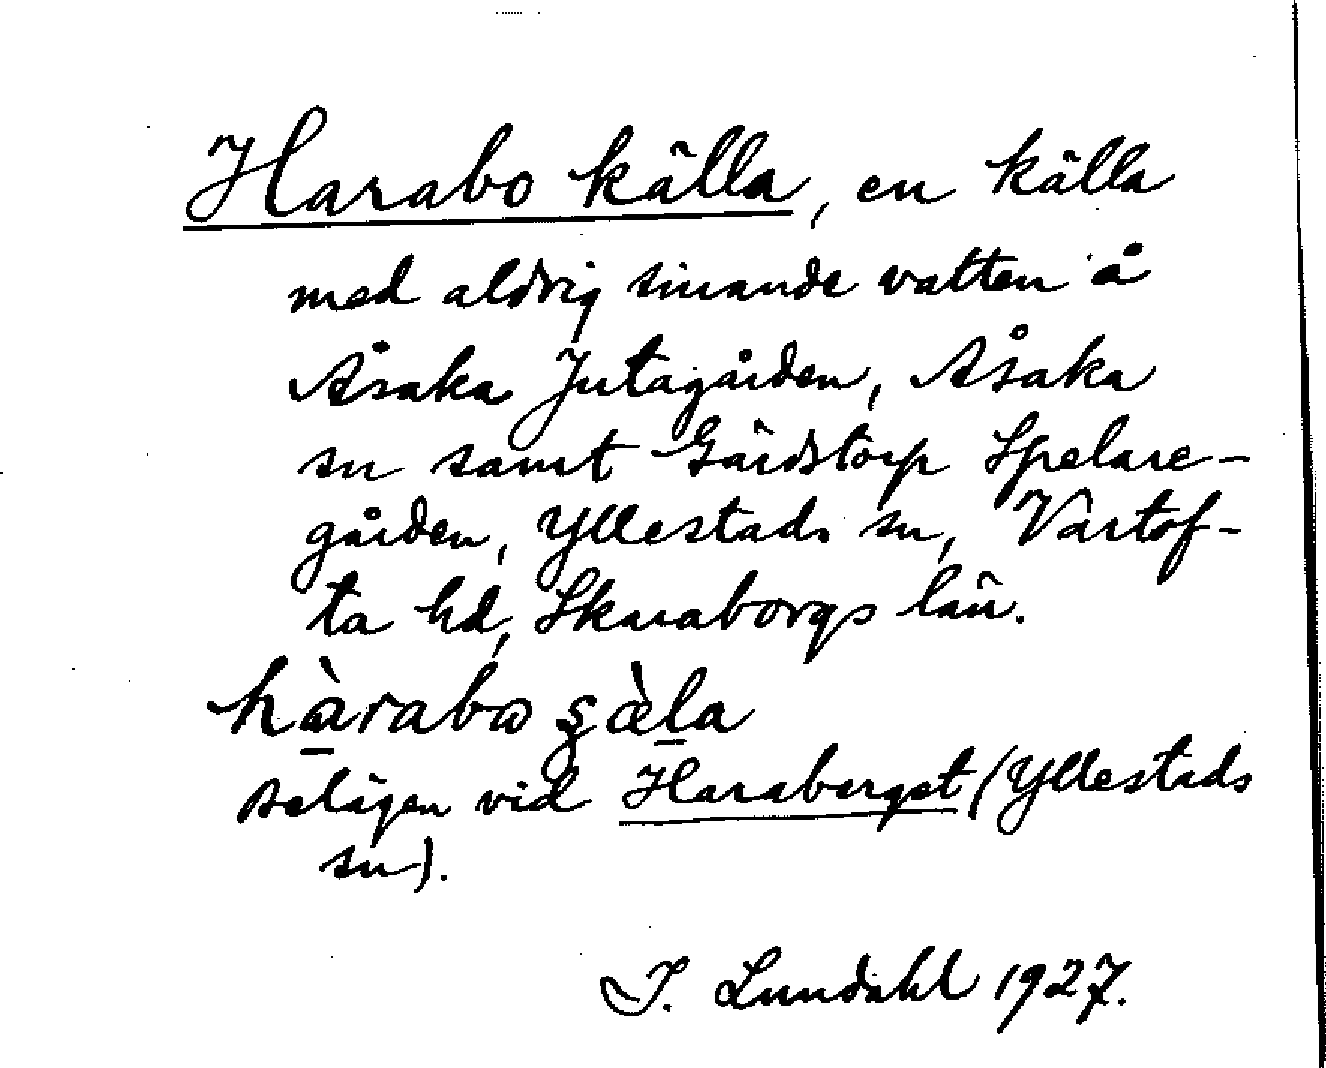 Harabo källa, en källa
med aldrig sinande vatten å
Åsaka Jutagården, Åsaka
sn samt Gärdstorp Spelare-
gården, Yllestads sn, Vartof-
ta hd, Skaraborgs län.
hàrabω ʂæ̀la
belägen vid Haraberget (Yllestads
sn).
I. Lundahl 1927.